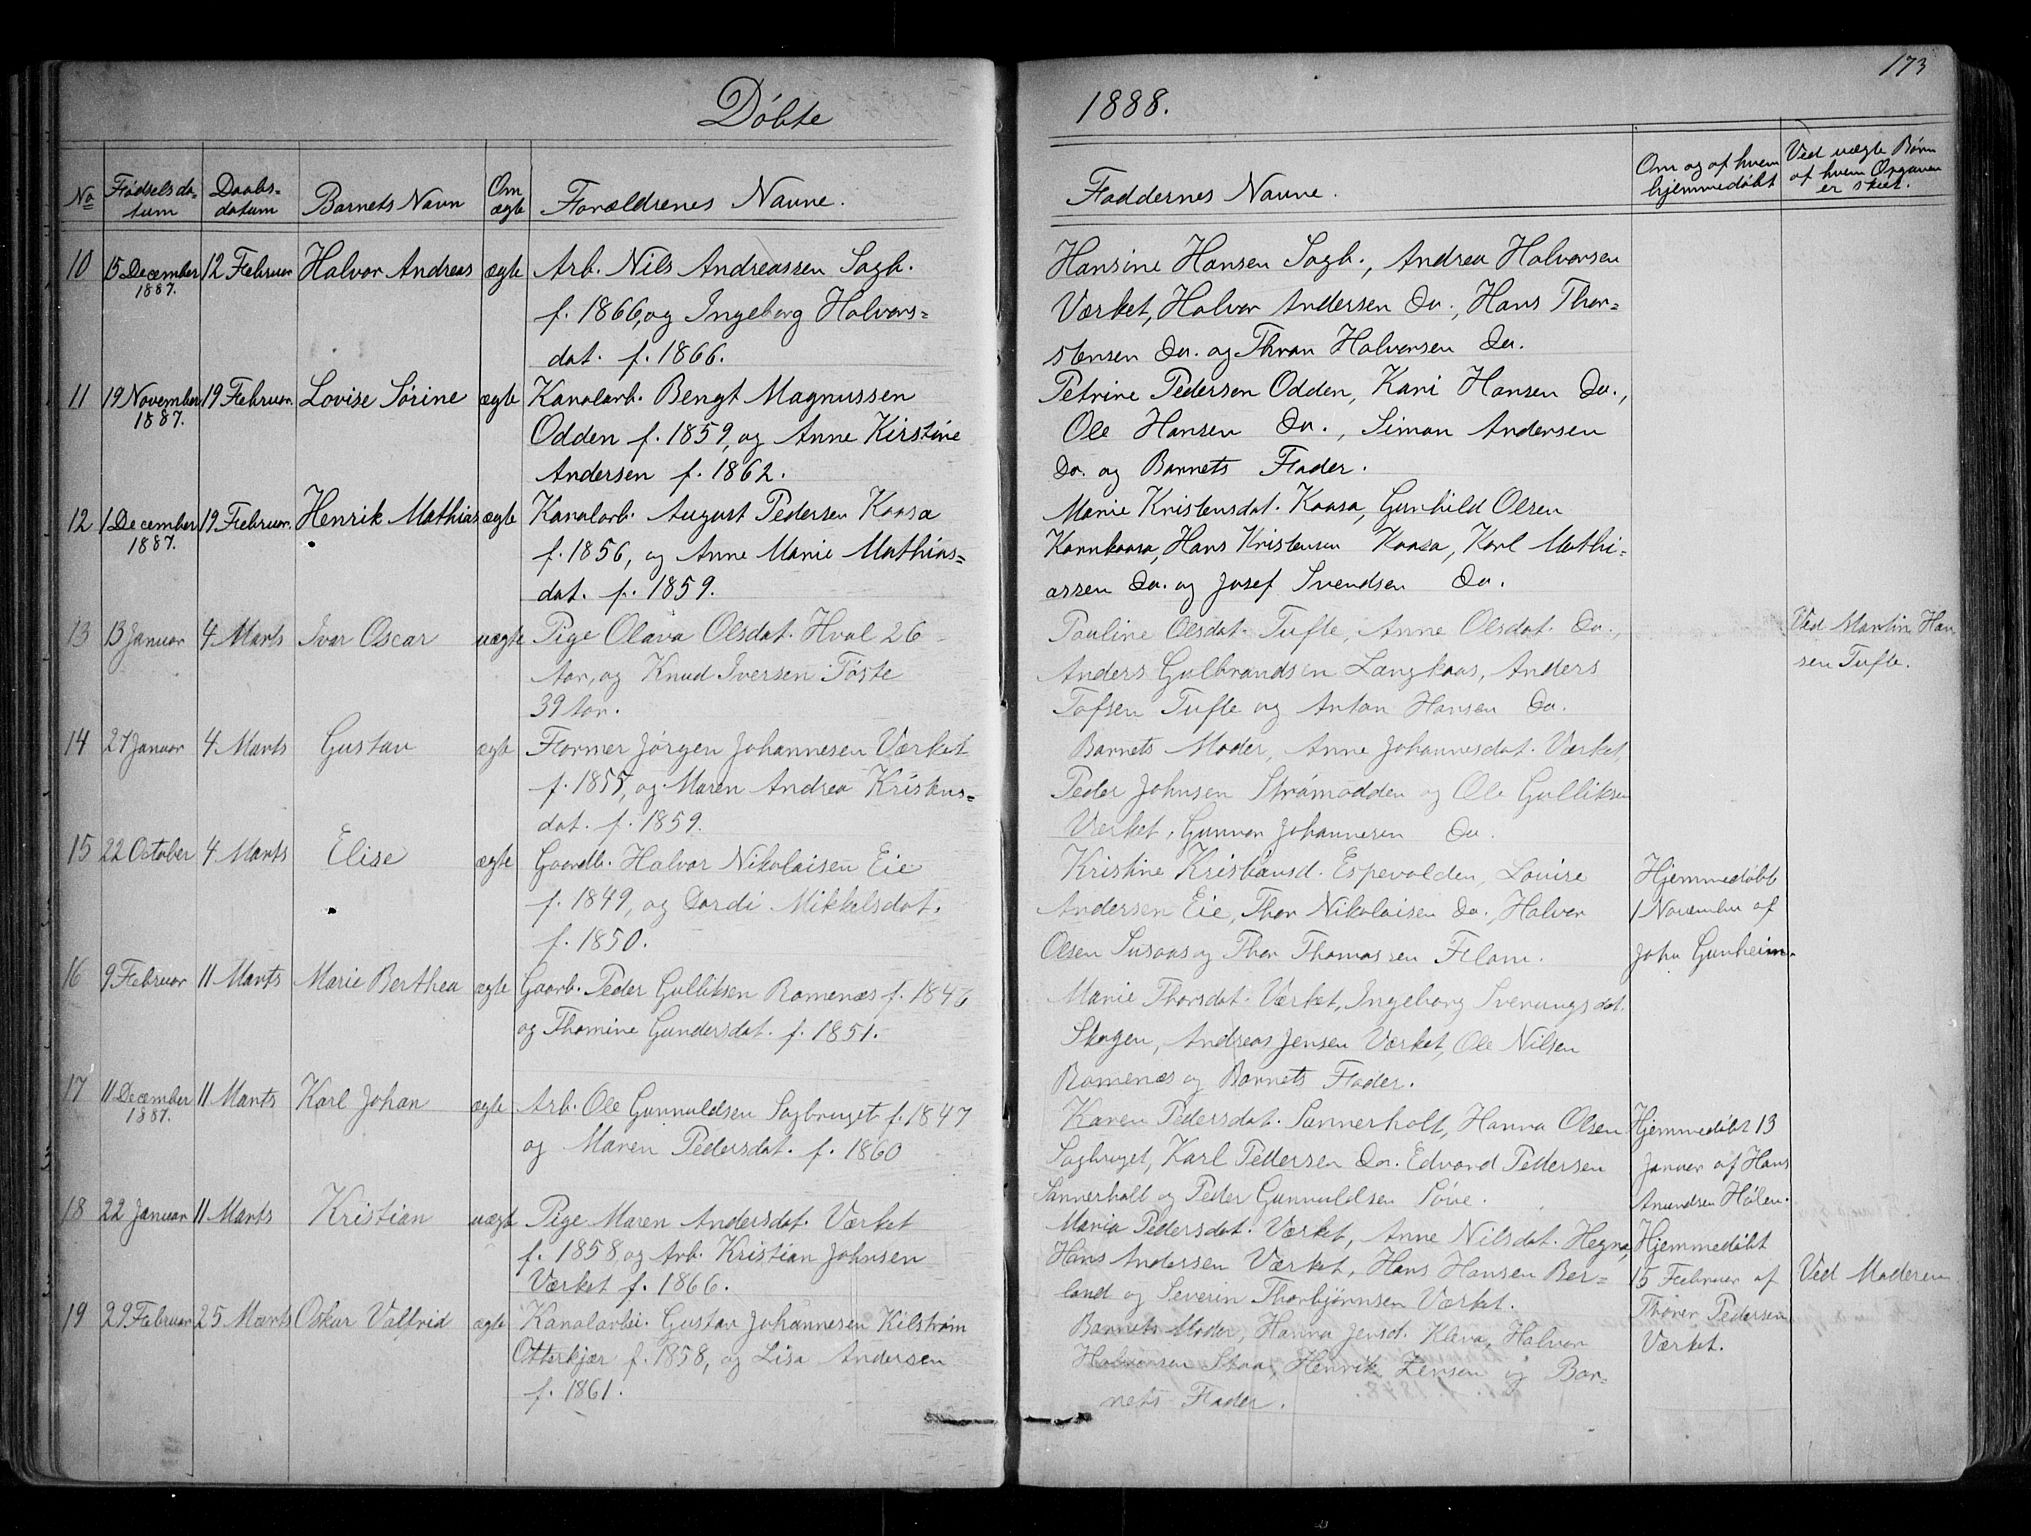 173
Döbte 1888.
No
Födselsda-
tum
Daabs-
datum
Barnets Navn
Om
ægte
Forældrenes Navne.
Faddernes Navne.
Om og af hvem
hjemmedøbt
Ved uægte Børn
af hvem Opgaven
er skeet.
10 15 December 12 Februar Halvor Andreas ægte Arb. Nils Andreassen Sagb.
1887.
f. 1866, og Ingeborg Halvors=
dat. f. 1866.
Hansine Hansen Sagb., Andrea Halvorsen
Værket, Halvor Andersen Do., Hans Thor=
stensen Do. og Thron Halvorsen Do.
11 19 November 19 Februar. Lovise Sørine ægte Kanalarb. Bengt Magnussen
1887.
Odden f. 1859, og Anne Kirstine
Andersen f. 1862.
Petrine Pedersen Odden, Kari Hansen Do.,
Ole Hansen Do., Simon Andersen
Do. og Barnets Fader.
12 1 December 19 Februar. Henrik Mathias ægte Kanalarb. August Pedersen Kaasa
1887.
f. 1856, og Anne Marie Mathias=
dat. f. 1859.
Marie Kristensdat. Kaasa, Gunhild Olsen
Kornkaasa, Hans Kristensen Kaasa, Karl Mathi=
assen Do. og Josef Svendsen Do.
13 13 Januar 4 Marts Ivar Oscar uægte Pige Olava Olsdat. Hval 26
Aar, og Knud Iversen Töste
39 Aar.
Pauline Olsdat. Tufte, Anne Olsdat. Do.,
Anders Gulbrandsen Langkaas, Anders
Tofsen Tufte og Anton Hansen Do.
Ved Martin Han
sen Tufte.
14 27 Januar 4 Marts Gustav ægte Former Jørgen Johannesen Værket
f. 1855, og Maren Andrea Kristens=
dat. f. 1859.
Barnets Moder, Anne Johannesdat. Værket,
Peder Johnsen Strømodden og Ole Gulliksen
Værket, Gunnar Johannesen Do.
15 22 October 4 Marts Elise ægte Gaardb. Halvor Nikolaisen Eie
f. 1849, og Dordi Mikkelsdat.
f. 1850.
Kristine Kristiansd. Espevolden, Lovise
Andersen Eie, Thor Nikolaisen Do., Halvor
Olsen Susaas og Thor Thomassen Flom.
Hjemmedöbt
1 November af
John Gunheim.
16 9 Februar 11 Marts Marie Berthea ægte Gaarb. Peder Gulliksen Romenæs f. 1846
og Thomine Gundersdat. f. 1851.
Marie Thorsdat. Værket, Ingeborg Sverungsdat.
Skogen, Andreas Jensen Værket, Ole Nilsen
Romenæs og Barnets Fader.
17 11 December 11 Marts Karl Johan ægte Arb. Ole Gunnuldsen Sagbruget f. 1847
1887.
og Maren Pedersdat. f. 1860
Karen Pedersdat. Sannerholt, Hanna Olsen
Sagbruget, Karl Pettersen Do. Edvard Pettersen
Sannerholt og Peder Gunnuldsen Söve.
Hjemmedöbt 13
Januar af Hans
Amundsen Hölen.
18 22 Januar 11 Marts Kristian uægte Pige Maren Andersdat. Værket
f. 1858 og Arb. Kristian Johnsen
Værket f. 1866.
Maria Pedersdat. Værket, Anne Nilsdat. Hegna,
Hans Andersen Værket, Hans Hansen Ber=
land og Severin Thorbjørnsen Værket.
Hjemmedöbt
15 Februar af
Thorer Pedersen
Værket.
Ved Moderen
19 29 Februar 25 Marts Oskar Valfrid ægte Kanalarbei. Gustav Johannesen Kilström
Otterkjær f. 1858, og Lisa Andersen
f. 1861.
Barnets Moder, Hanna Jensd. Kleva, Halvor
Halvorsen Staa, Henrik Jensen og Bar=
nets Fader.